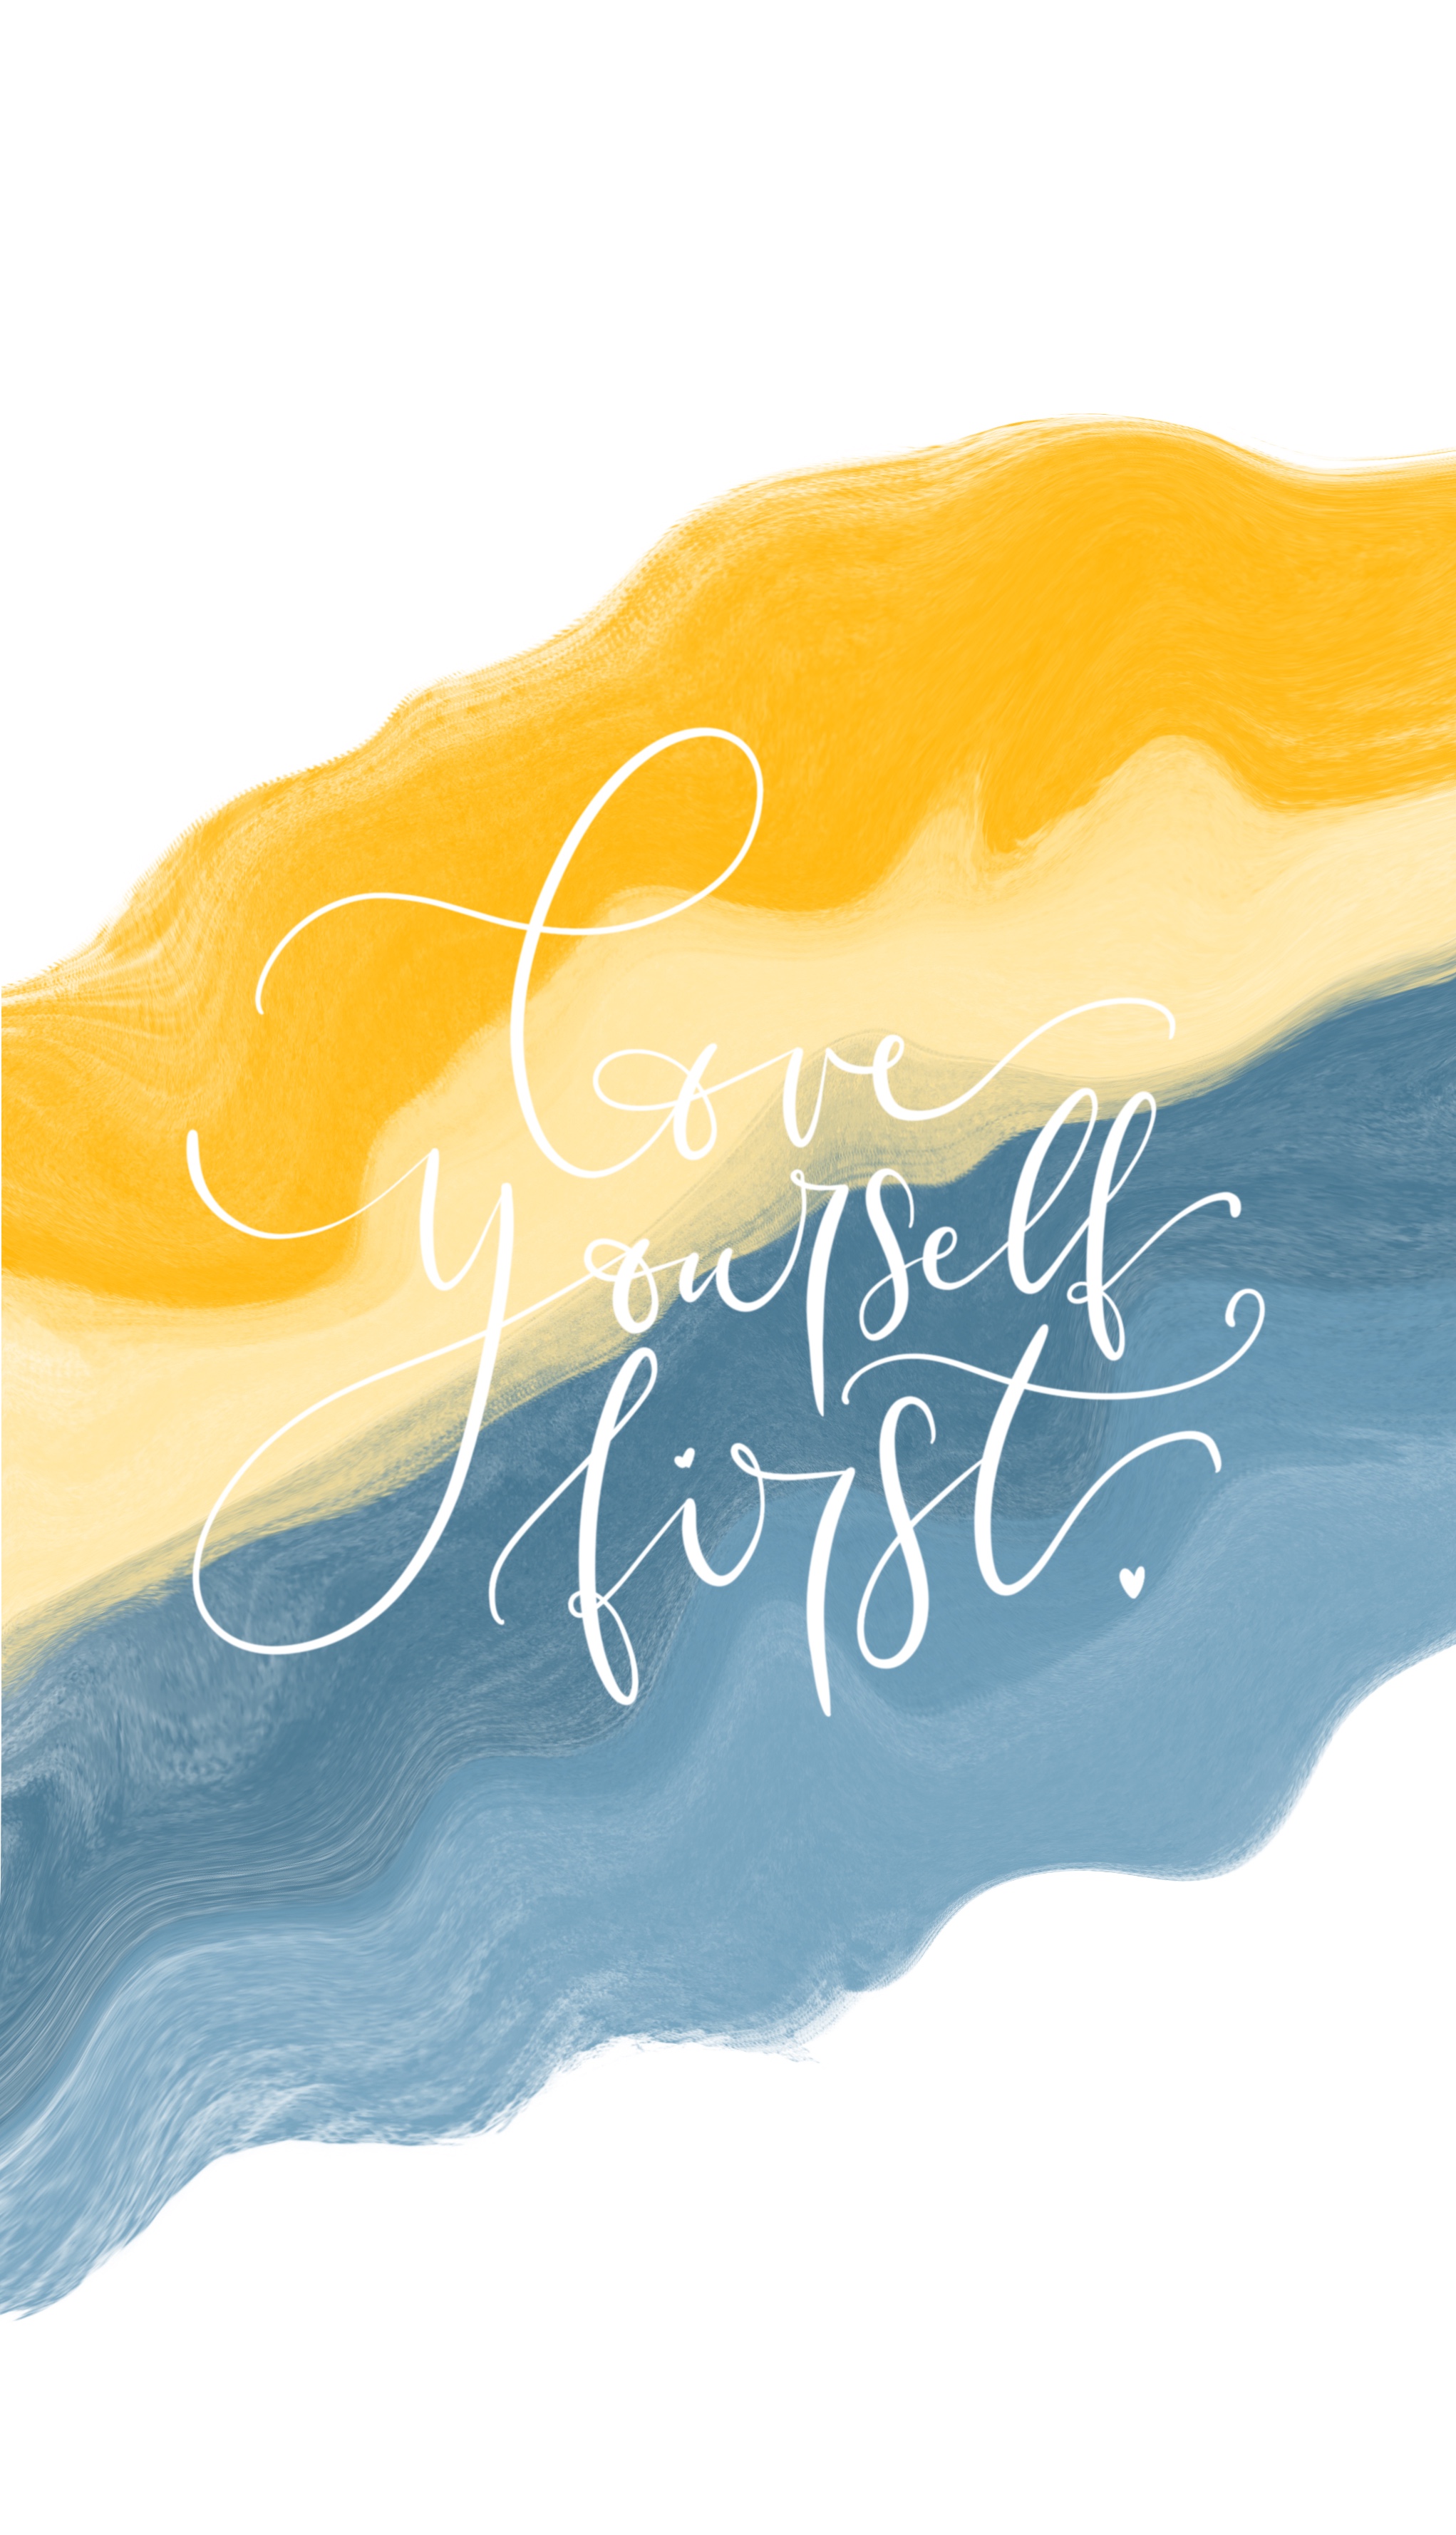 love
yourself
first.